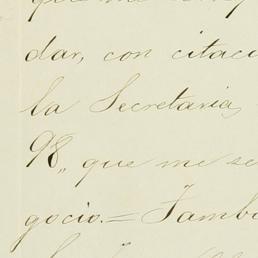 que me
dar, con citaci
la Secretaria,
98,, que me se
gocio.= Tamb